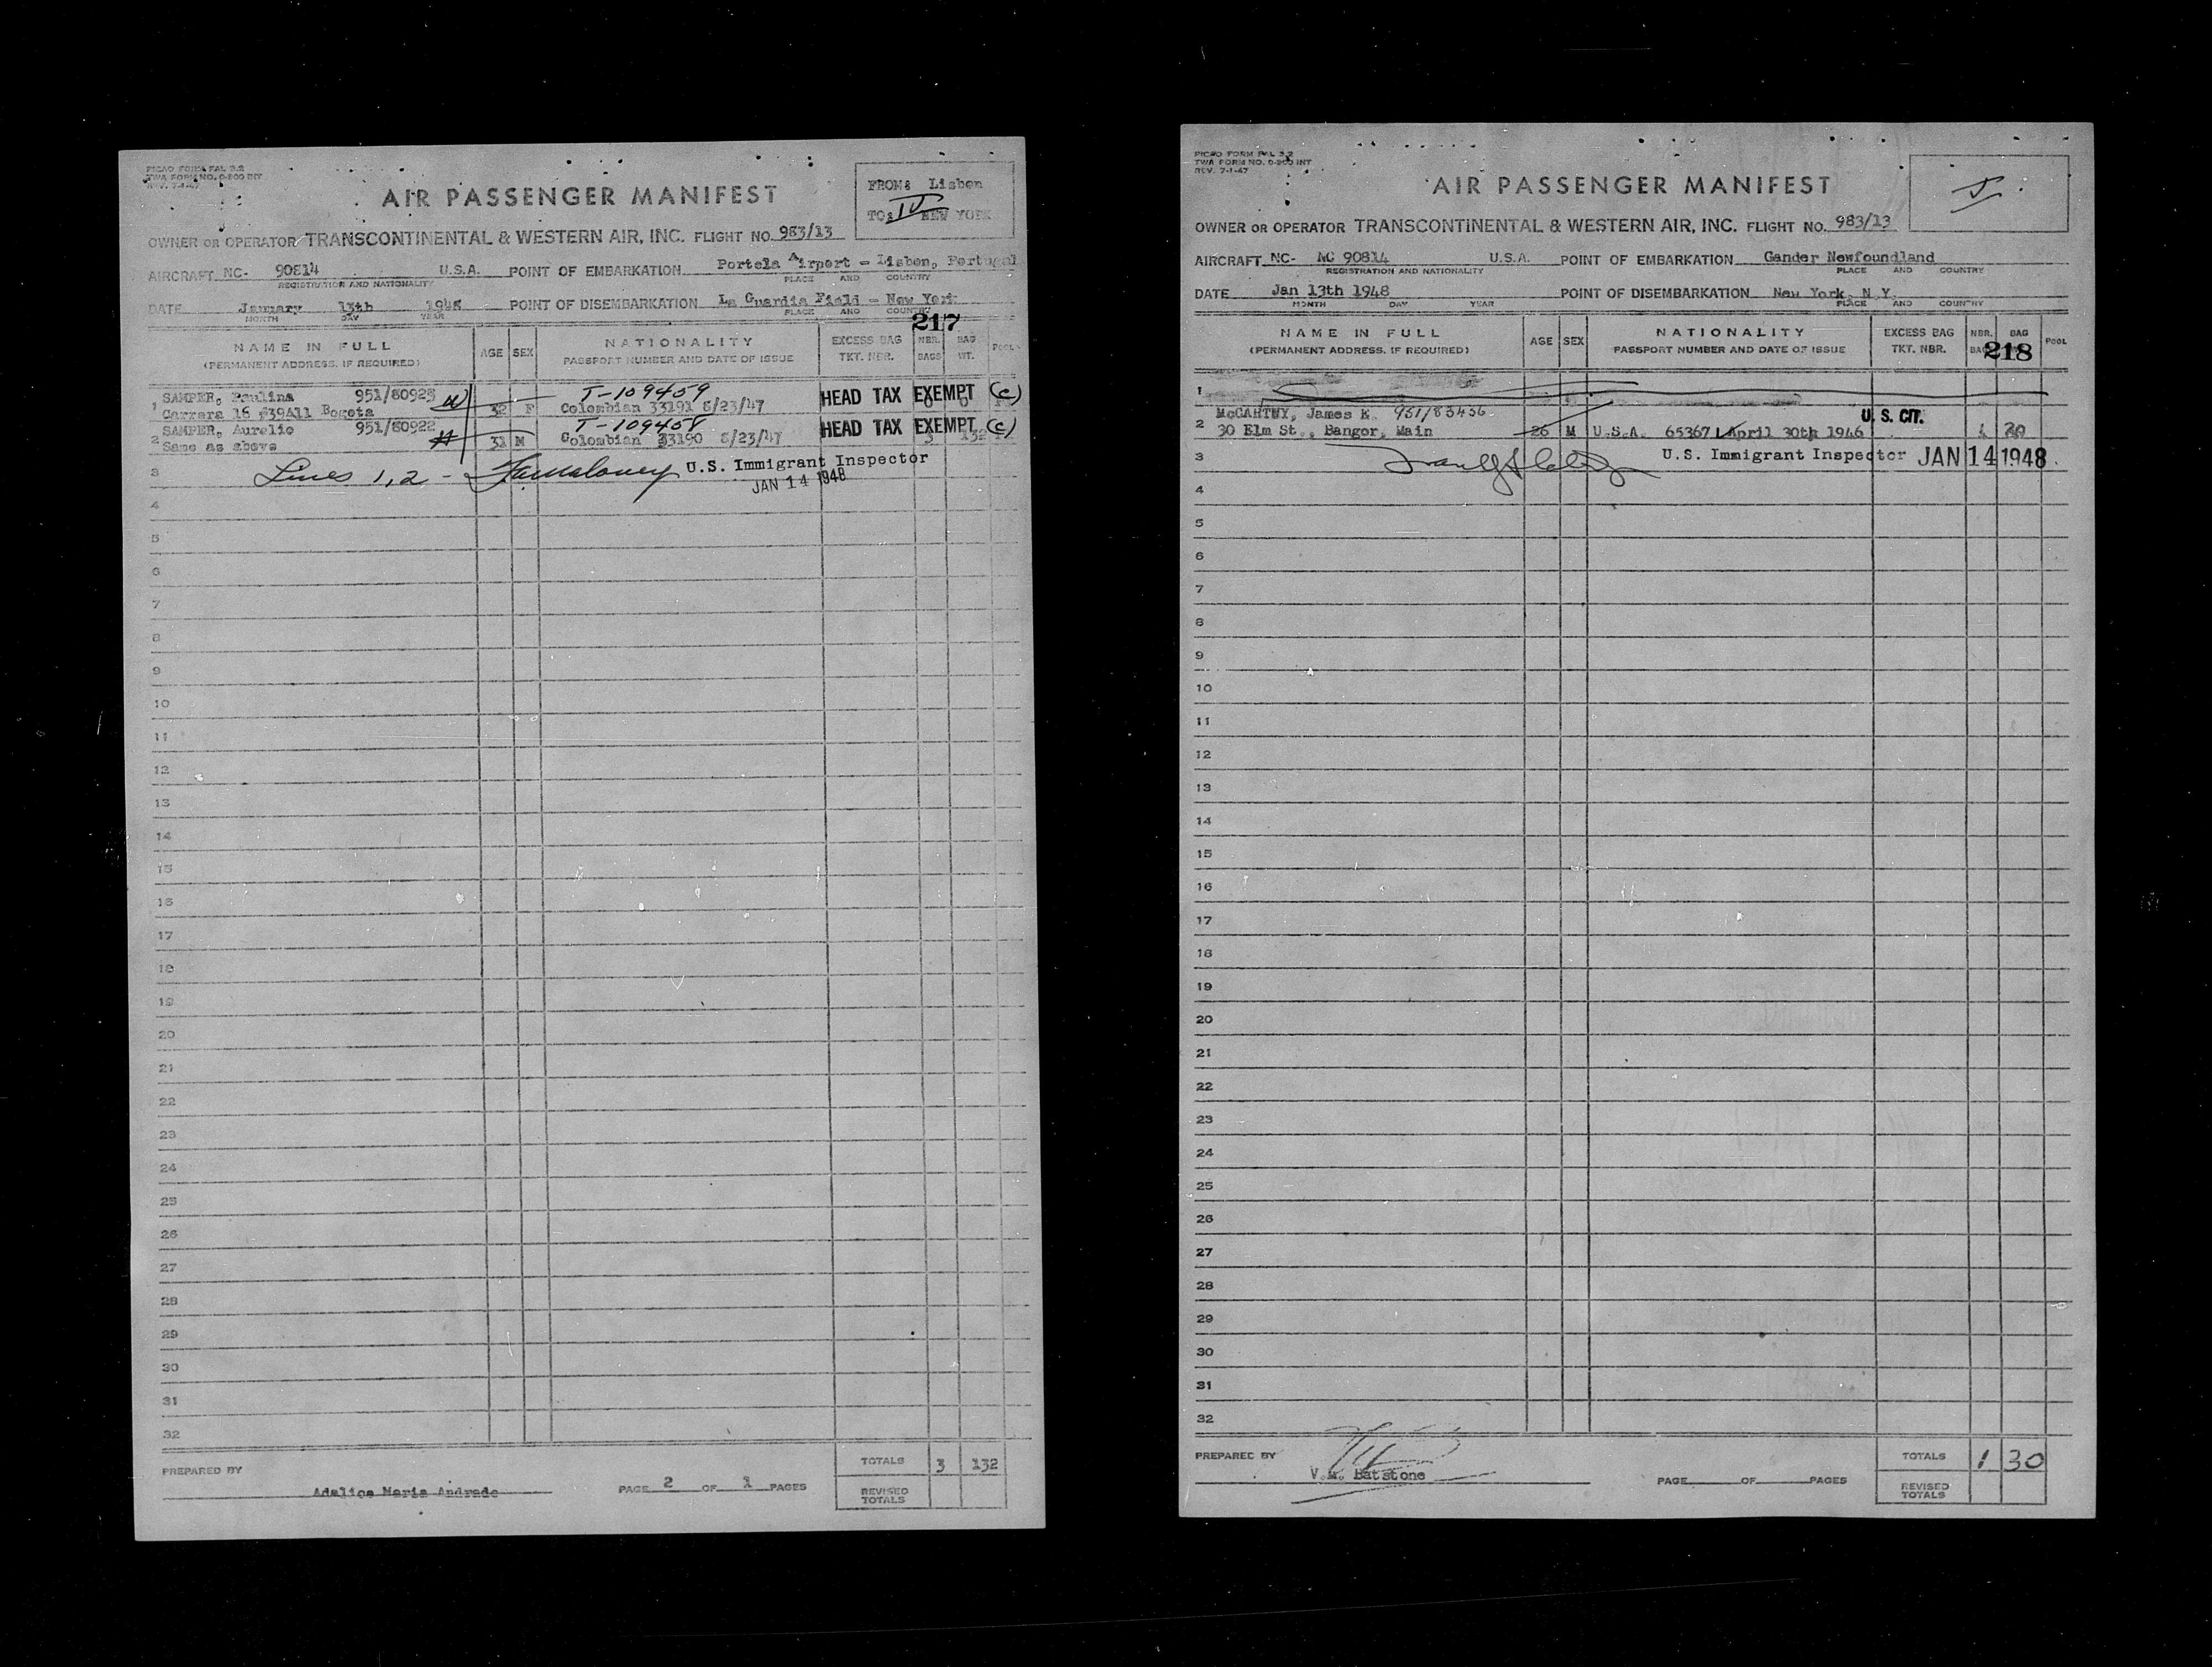 PICAO FORM FAL 3.2
TWA FORM NO. 0-800 INT
REV. 7-1-47
AIR PASSENGER MANIFEST
FROM: Lisbon
TO: NEW YORK
IV
OWNER OR OPERATOR TRANSCONTINENTAL & WESTERN AIR, INC. FLIGHT NO. 983/13
AIRCRAFT NC- 90814 U.S.A. POINT OF EMBARKATION Portela Airport - Lisbon, Portugal
REGISTRATION AND NATIONALITY PLACE AND COUNTRY
DATE January 13th 1948 POINT OF DISEMBARKATION La Guardia Field - New York
MONTH DAY YEAR PLACE AND COUNTRY
217
NAME IN FULL AGE SEX NATIONALITY EXCESS BAG NBR. BAG POOL
(PERMANENT ADDRESS, IF REQUIRED) PASSPORT NUMBER AND DATE OF ISSUE TKT. NBR. BAGS WT.
T-109459
1 SAMPER, Paulina 951/80923 HEAD TAX EXEMPT (c)
Carrera 16 #39A11 Bogota 32 F Colombian 33191 8/23/47
T-109458
2 SAMPER, Aurelio 951/80922 HEAD TAX EXEMPT (c)
Same as above 31 M Colombian 33190 8/23/47 3 132
3 Lines 1,2 - U.S. Immigrant Inspector
JAN 14 1948
4
5
6
7
8
9
10
11
12
13
14
15
16
17
18
19
20
21
22
23
24
25
26
27
28
29
30
31
32
TOTALS 3 132
PREPARED BY
Adelice Maria Andrade PAGE 2 OF 1 PAGES
REVISED
TOTALS
PICAO FORM FAL 3.2
TWA FORM NO. 0-800 INT
REV. 7-1-47
AIR PASSENGER MANIFEST
V
OWNER OR OPERATOR TRANSCONTINENTAL & WESTERN AIR, INC. FLIGHT NO. 983/13
AIRCRAFT NC- NC 90814 U.S.A. POINT OF EMBARKATION Gander Newfoundland
REGISTRATION AND NATIONALITY PLACE AND COUNTRY
DATE Jan 13th 1948 POINT OF DISEMBARKATION New York, N.Y.
MONTH DAY YEAR PLACE AND COUNTRY
NAME IN FULL AGE SEX NATIONALITY EXCESS BAG NBR. BAG POOL
(PERMANENT ADDRESS, IF REQUIRED) PASSPORT NUMBER AND DATE OF ISSUE TKT. NBR. 218
1
McCARTHY, James E. 951/83436 U.S. CIT.
2 30 Elm St., Bangor, Main 26 M U.S.A. 65367 April 30th 1946 1 30
3 U.S. Immigrant Inspector JAN 14 1948
4
5
6
7
8
9
10
11
12
13
14
15
16
17
18
19
20
21
22
23
24
25
26
27
28
29
30
31
32
PREPARED BY TOTALS 1 30
V.M. Batstone PAGE OF PAGES
REVISED
TOTALS